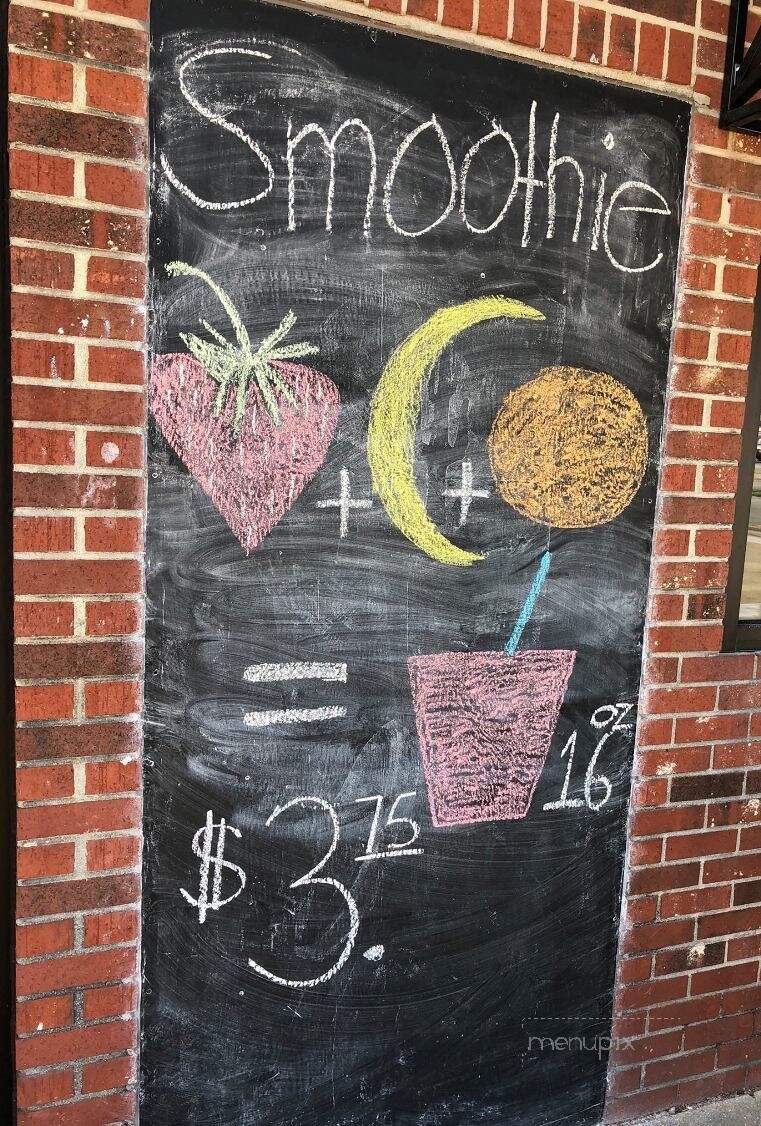 Smoothie
+ +
=
16 oz
$3.75
menupix